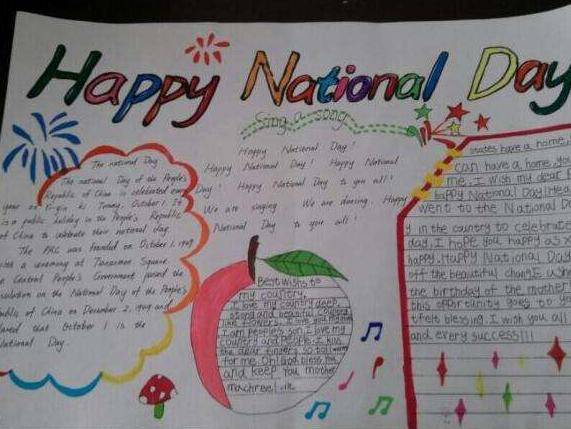 Happy National Day
Sing a song
Happy National Day!
Happy National Day! Happy National
Day! Happy National Day to you all!
We are singing We are dancing. Happy
National Day to you all!
The national Day
The national Day of the People's
Republic of China is celebrated every
year on October 1. It
is a public holiday in the People's Republic
of China to celebrate their national day.
The PRC was founded on October 1, 1949
with a ceremony at Tiananmen Square
The Central People's Government passed the
Resolution on the National Day of the People's
Republic of China on December 2, 1949 and
declared that October 1 is the
National Day.
Best wishes to
my country.
I love my country deep
strong and beautiful
like flowers. I love you mother
I am people's son. I love my
country and people. I kiss
the dear
for me. Oh! God bless you
and keep you mother
have a home,
can have a home, you
me. I wish my dear
happy National Day!
went to the National Day
y in the country to celebrate
day, I hope you happy as
happy. Happy National Day
off the beautiful
the birthday of the mother
this opportunity goes to you
blessing. I wish you all
and every success!!!